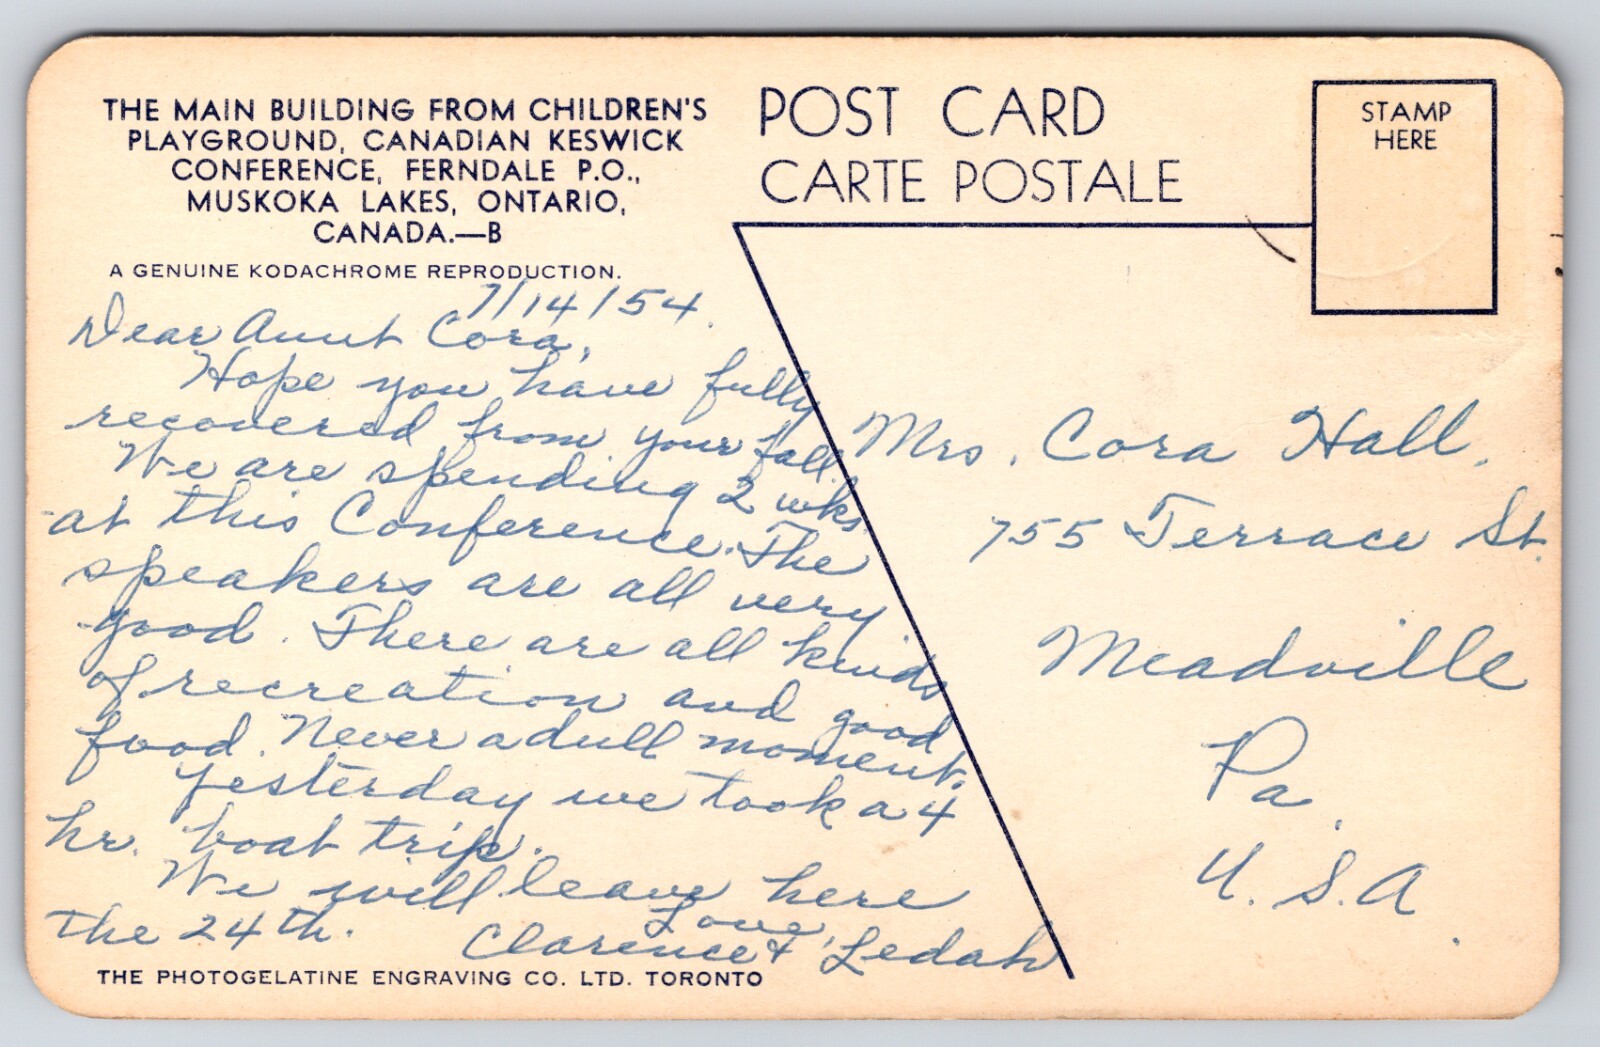 THE MAIN BUILDING FROM CHILDREN'S
PLAYGROUND, CANADIAN KESWICK
CONFERENCE, FERNDALE P.O.,
MUSKOKA LAKES, ONTARIO,
CANADA.—B
A GENUINE KODACHROME REPRODUCTION.
POST CARD
CARTE POSTALE
STAMP
HERE
7/14/54.
Dear Aunt Cora,
Hope you have fully
recovered from your fall.
We are spending 2 wks.
at this Conference. The
speakers are all very
good. There are all kinds
of recreation and good
food. Never a dull moment.
Yesterday we took a 4
hr. boat trip.
We will leave here
the 24th.
Love,
Clarence & Ledah
Mrs. Cora Hall,
755 Terrace St.
Meadville
Pa.
U.S.A.
THE PHOTOGELATINE ENGRAVING CO. LTD. TORONTO